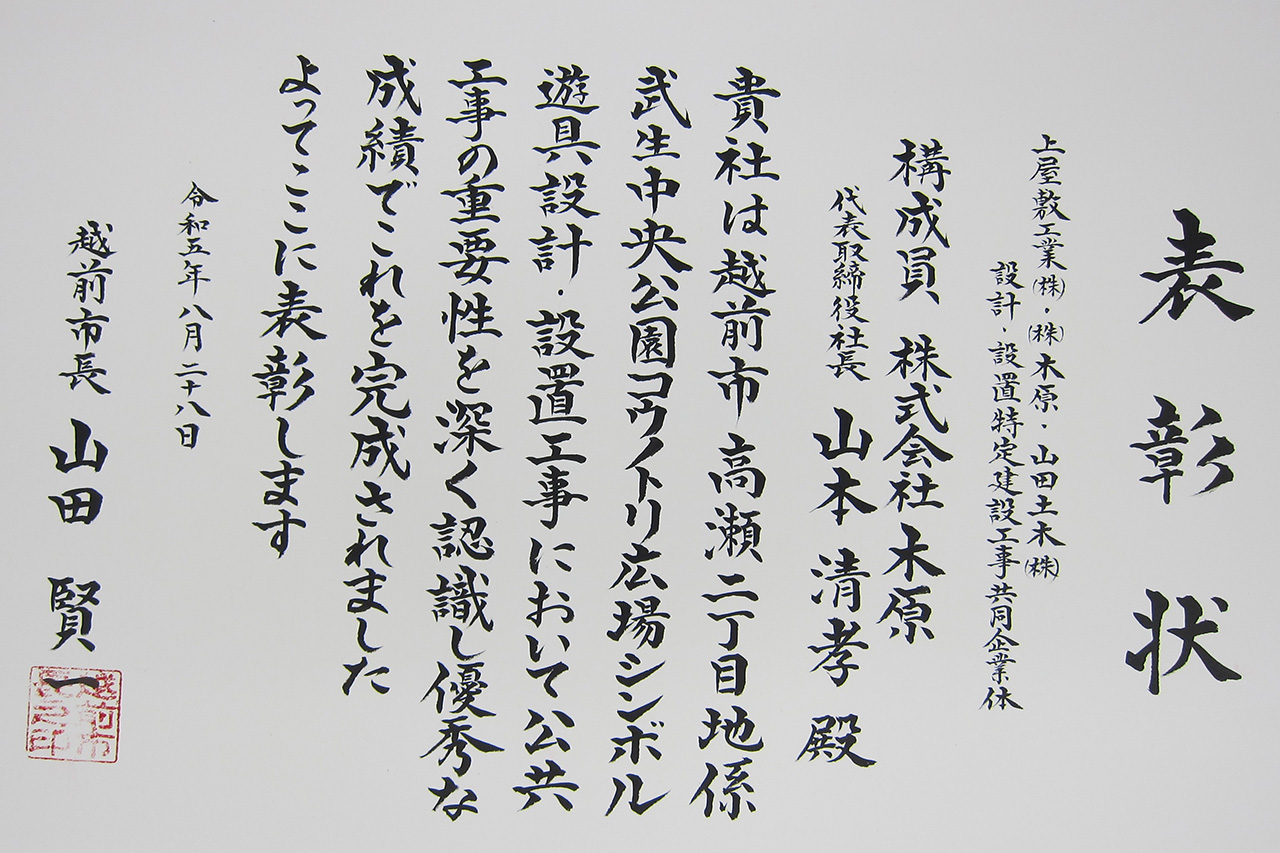 表彰状
上屋敷工業㈱・㈱木原・山田土木㈱
設計・設置特定建設工事共同企業体
構成員 株式会社木原
代表取締役社長 山本清孝殿
貴社は越前市高瀬二丁目地係
武生中央公園コウノトリ広場シンボル
遊具設計・設置工事において公共
工事の重要性を深く認識し優秀な
成績でこれを完成されました
よってここに表彰します
令和五年八月二十八日
越前市長 山田賢一